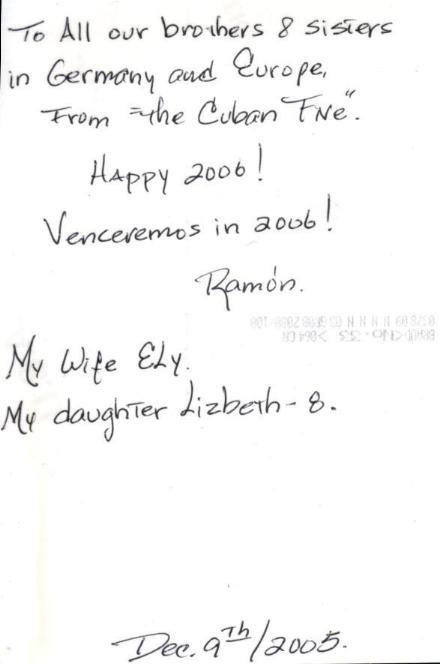 To All our brothers & sisters
in Germany and Europe,
From "the Cuban Five".
Happy 2006!
Venceremos in 2006!
Ramón.
My Wife Ely.
My daughter Lizbeth - 8.
Dec. 9th/2005.